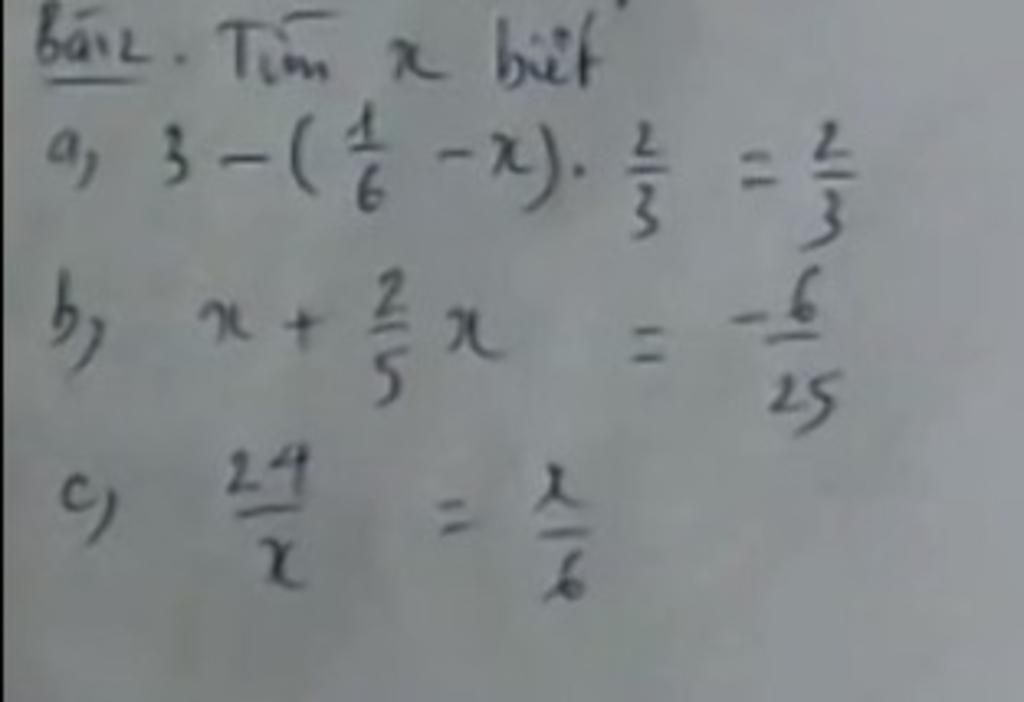 Bài 2. Tìm x biết
a, 3 - (1/6 - x) . 2/3 = 2/3
b, x + 2/5 x = -6/25
c, 24/x = x/6